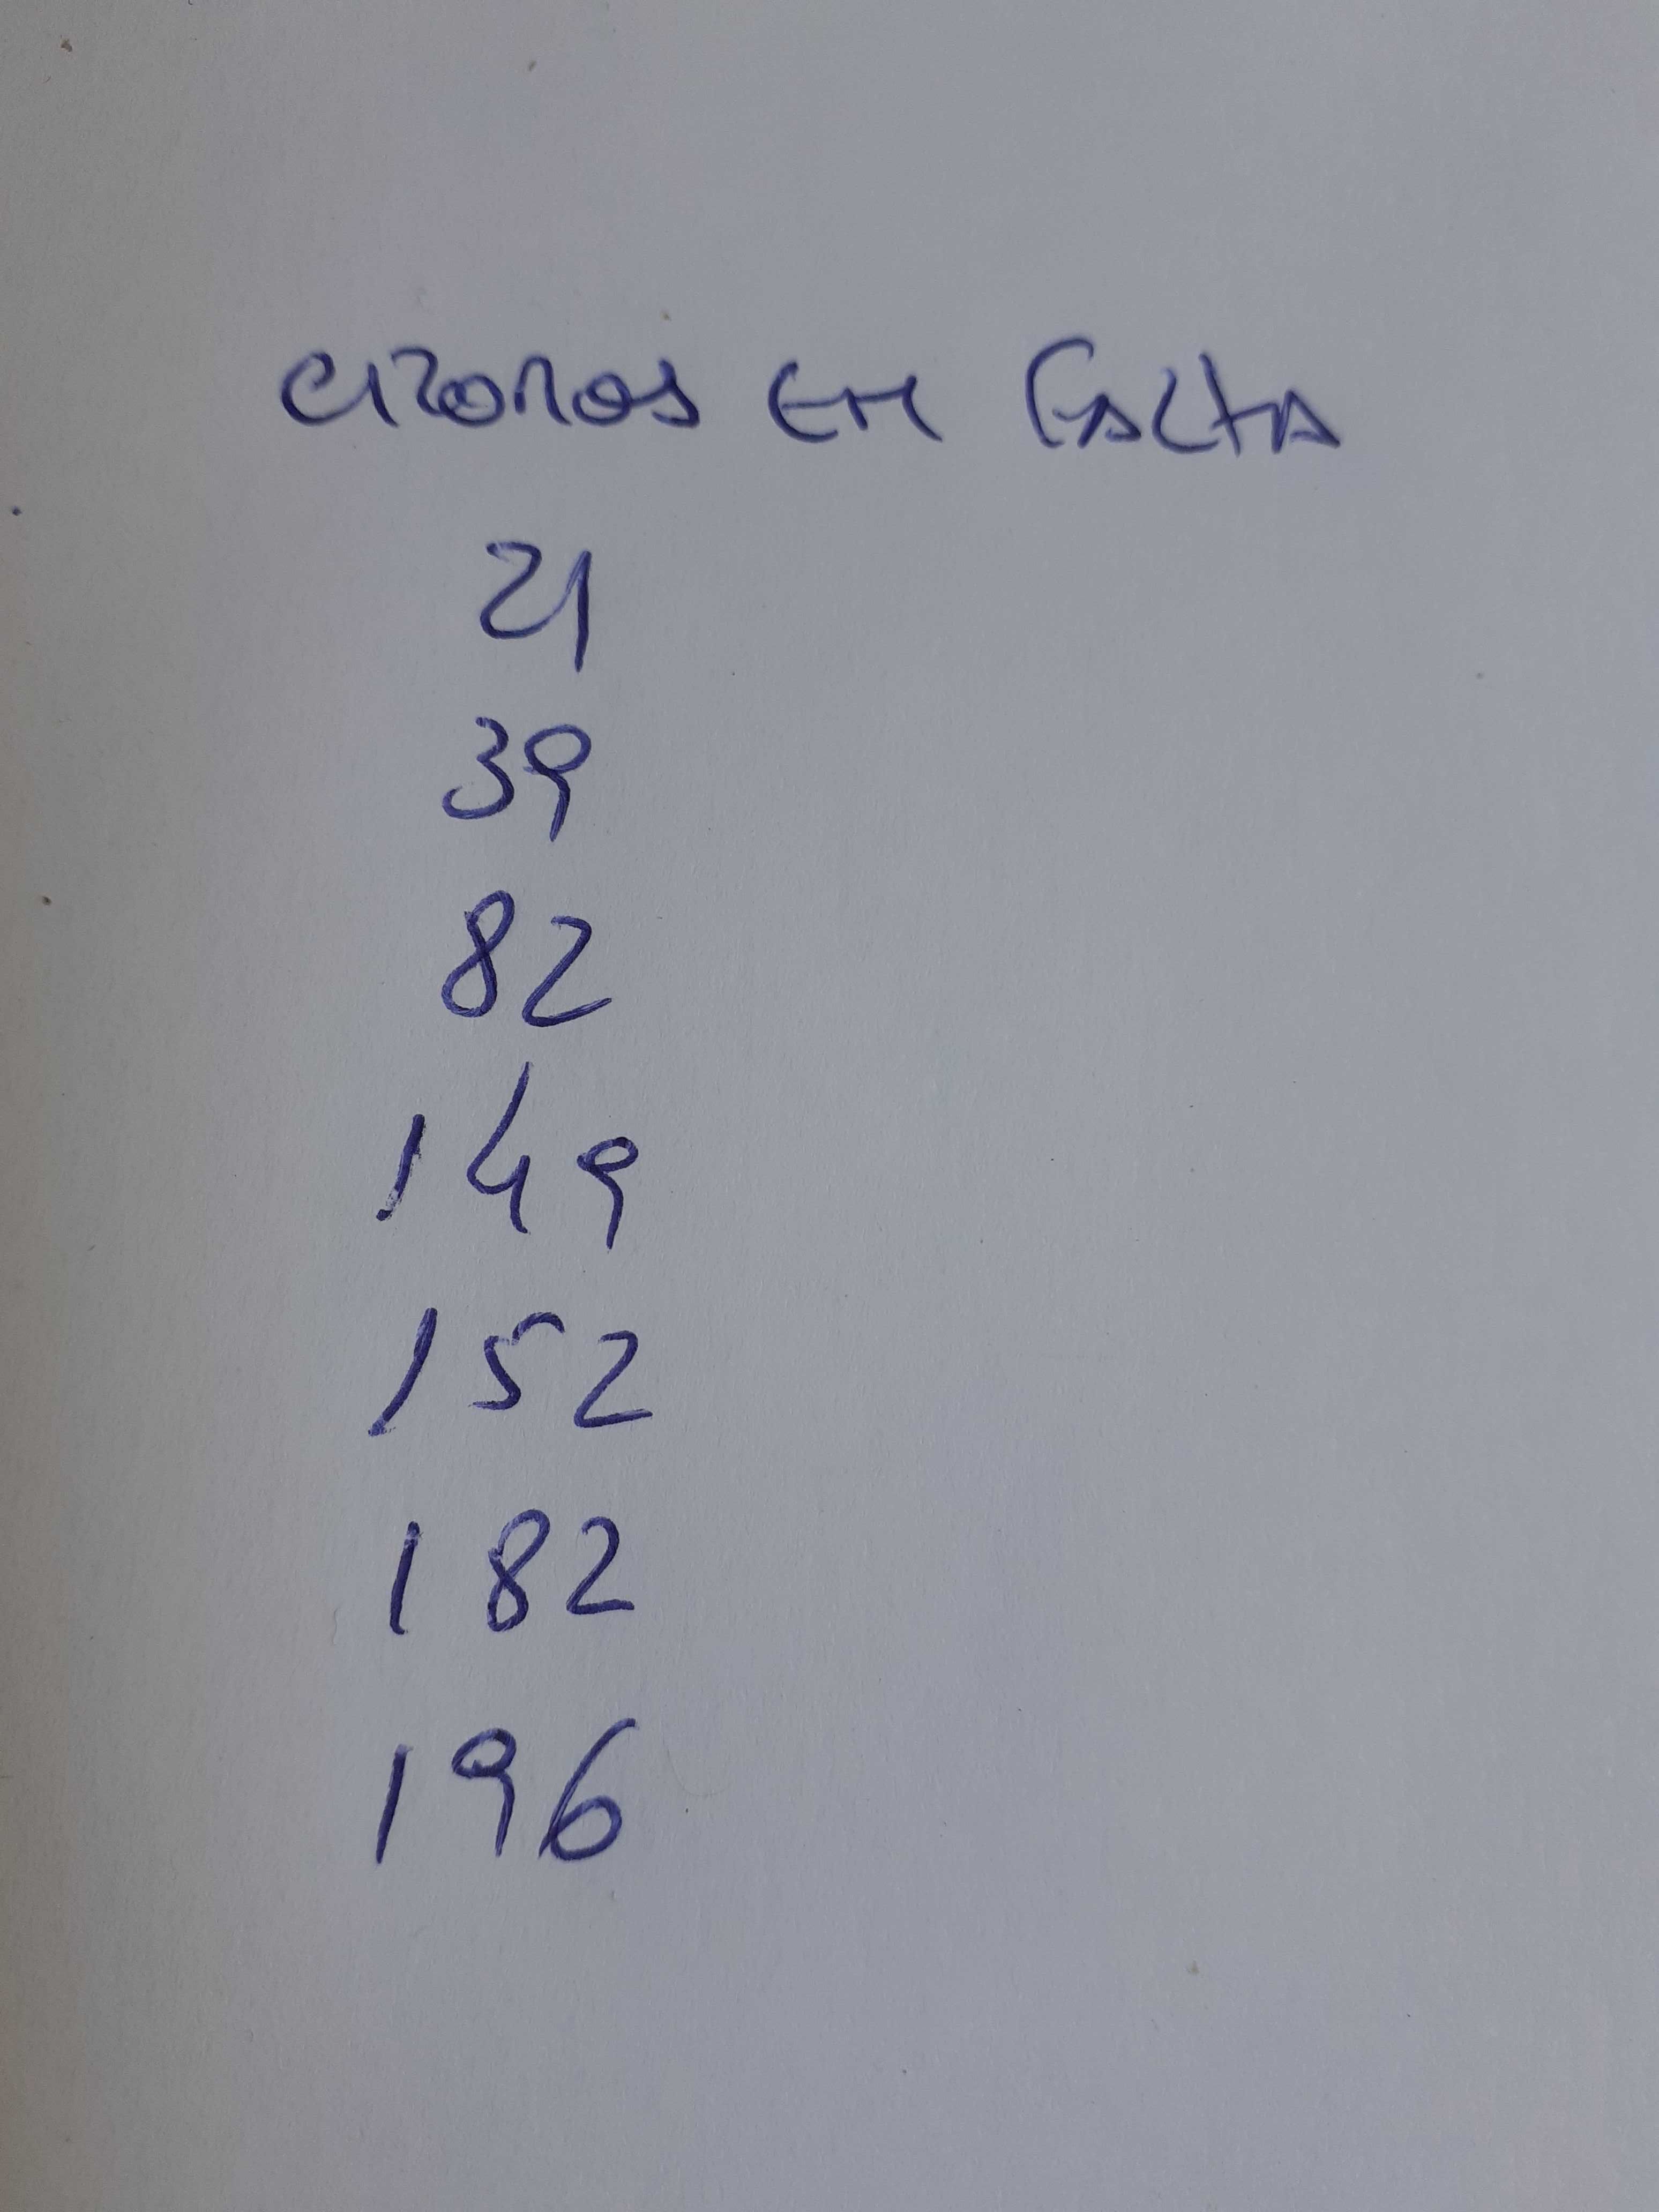 CROMOS EM FALTA
21
39
82
149
152
182
196